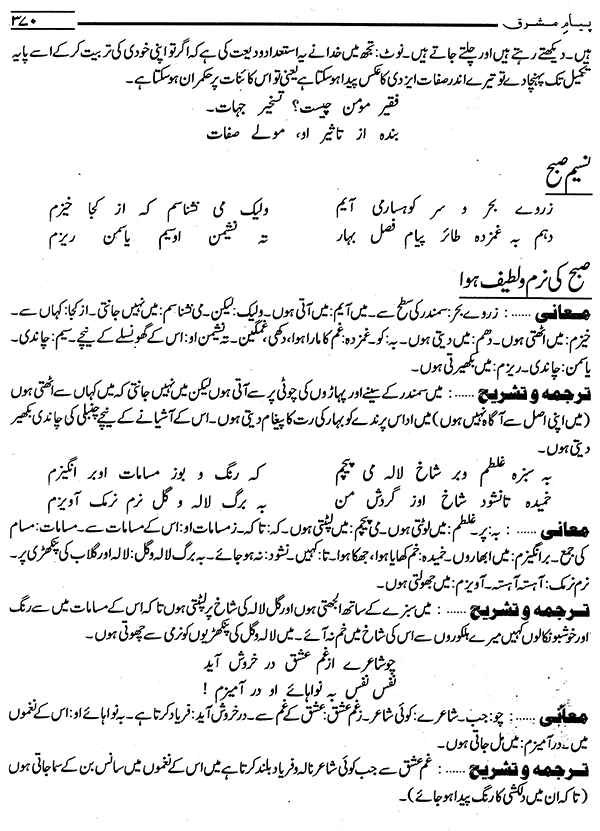 پیامِ مشرق ۳۷۰
ہیں۔ دیکھتے رہتے ہیں اور چلتے جاتے ہیں۔ نوٹ: تجھ میں خدا نے یہ استعداد ودیعت کی ہے کہ اگر تو اپنی خودی کی تربیت کر کے اسے پایہ
تکمیل تک پہنچا دے تو تیرے اندر صفات ایزدی کا عکس پیدا ہو سکتا ہے یعنی تو اس کائنات پر حکمران ہو سکتا ہے۔
فقیر مؤمن چیست؟ تسخیر جہات۔
بندہ از تاثیر او، مولے صفات
نسیم صبح
زروے بحر و سر کوہسار می آیم ولیک می نشناسم کہ از کجا خیزم
دہم بہ غمزدہ طائر پیام فصل بہار تہ نشیمن اوسیم یاسمن ریزم
صبح کی نرم و لطیف ہوا
معانی ...... : زروے بحر: سمندر کی سطح سے۔ میں آیم: میں آتی ہوں۔ ولیک: لیکن۔ می نشناسم: میں نہیں جانتی۔ از کجا: کہاں سے۔
خیزم: میں اٹھتی ہوں۔ دھم: میں دیتی ہوں۔ بہ: کو۔ غمزدہ: غم کا مارا ہوا، دکھی، غمگین۔ تہ نشیمن او: اس کے گھونسلے کے نیچے۔ سیم: چاندی۔
یاسمن: چاندی۔ ریزم: میں بکھیرتی ہوں۔
ترجمہ و تشریح ...... : میں سمندر کے سینے اور پہاڑوں کی چوٹی پر سے آتی ہوں لیکن میں نہیں جانتی کہ میں کہاں سے اٹھتی ہوں
(میں اپنی اصل سے آگاہ نہیں ہوں) میں اداس پرندے کو بہار کی رت کا پیغام دیتی ہوں۔ اس کے آشیانے کے نیچے چنبیلی کی چاندی بکھیر
دیتی ہوں۔
بہ سبزہ غلطم وبر شاخ لالہ می پیچم کہ رنگ و بوز مسامات اوبر انگیزم
خمیدہ تانشود شاخ اوز گردش من بہ برگ لالہ و گل نرم نرمک آویزم
معانی ...... : بہ: پر۔ غلطم: میں لوٹتی ہوں۔ می پیچم: میں لپٹتی ہوں۔ کہ: تا کہ۔ زمسامات او: اس کے مسامات سے۔ مسامات: مسام
کی جمع۔ برانگیزم: میں ابھاروں۔ خمیدہ: خم کھایا ہوا، جھکا ہوا۔ تا: کہیں۔ نشود: نہ ہو جائے۔ بہ برگ لالہ و گل: لالہ اور گلاب کی پنکھڑی پر۔
نرم نرمک: آہستہ آہستہ۔ آویزم: میں جھولتی ہوں۔
ترجمہ و تشریح ...... : میں سبزے کے ساتھ الجھتی ہوں اور گل لالہ کی شاخ پر لپٹتی ہوں تا کہ اس کے مسامات میں سے رنگ
اور خوشبو نکالوں کہیں میرے ہلکوروں سے اس کی شاخ میں خم نہ آئے۔ میں لالہ و گل کی پنکھڑیوں کو نرمی سے چھوتی ہوں۔
چو شاعرے ازغم عشق در خروش آید
نفس نفس بہ نواہائے او در آمیزم !
معانی ...... : چو: جب۔ شاعرے: کوئی شاعر۔ زغم عشق: عشق کے غم سے۔ در خروش آید: فریاد کرتا ہے۔ بہ نواہائے او: اس کے نغموں
میں۔ در آمیزم: میں مل جاتی ہوں۔
ترجمہ و تشریح ...... : غم عشق سے جب کوئی شاعر نالہ و فریاد بلند کرتا ہے میں اس کے نغموں میں سانس بن کے سما جاتی ہوں
(تا کہ ان میں دلکشی کا رنگ پیدا ہو جائے)۔